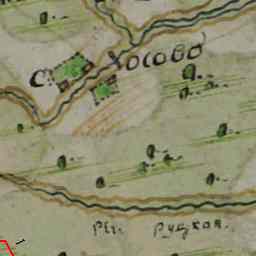 С. Хосово
реч. Руцкая.